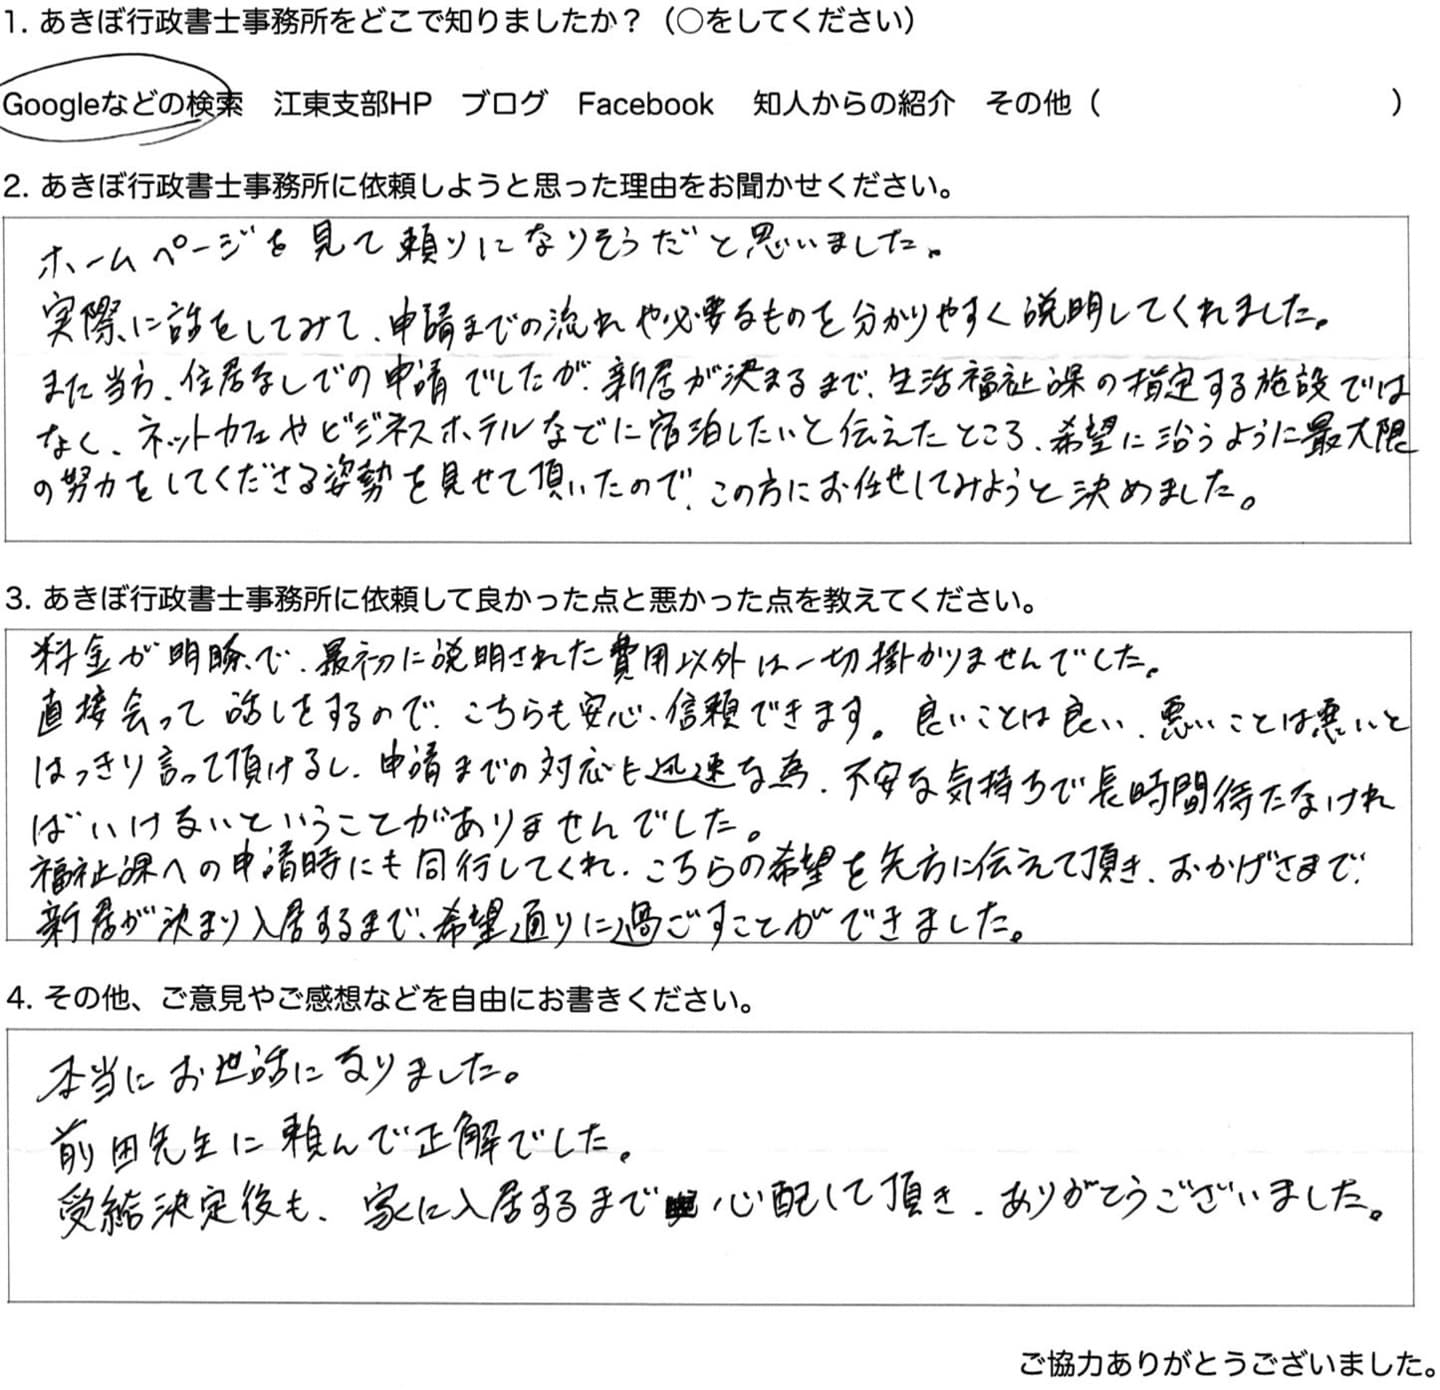 1. あきぼ行政書士事務所をどこで知りましたか？（○をしてください）
Googleなどの検索　江東支部HP　ブログ　Facebook　知人からの紹介　その他（　　　　　　　　　）
2. あきぼ行政書士事務所に依頼しようと思った理由をお聞かせください。
ホームページを見て頼りになりそうだと思いました。
実際に話をしてみて、申請までの流れや必要なものを分かりやすく説明してくれました。
また当方、住居なしでの申請でしたが、新居が決まるまで、生活福祉課の指定する施設では
なく、ネットカフェやビジネスホテルなどに宿泊したいと伝えたところ、希望に沿うように最大限
の努力をしてくださる姿勢を見せて頂いたので、この方にお任せしてみようと決めました。
3. あきぼ行政書士事務所に依頼して良かった点と悪かった点を教えてください。
料金が明瞭で、最初に説明された費用以外は一切掛かりませんでした。
直接会って話しをするので、こちらも安心、信頼できます。良いことは良い、悪いことは悪いと
はっきり言って頂けるし、申請までの対応も迅速な為、不安な気持ちで長時間待たなけれ
ばいけないということがありませんでした。
福祉課への申請時にも同行してくれ、こちらの希望を先方に伝えて頂き、おかげさまで、
新居が決まり入居するまで、希望通りに過ごすことができました。
4. その他、ご意見やご感想などを自由にお書きください。
本当にお世話になりました。
前田先生に頼んで正解でした。
受給決定後も、家に入居するまで心配して頂き、ありがとうございました。
ご協力ありがとうございました。